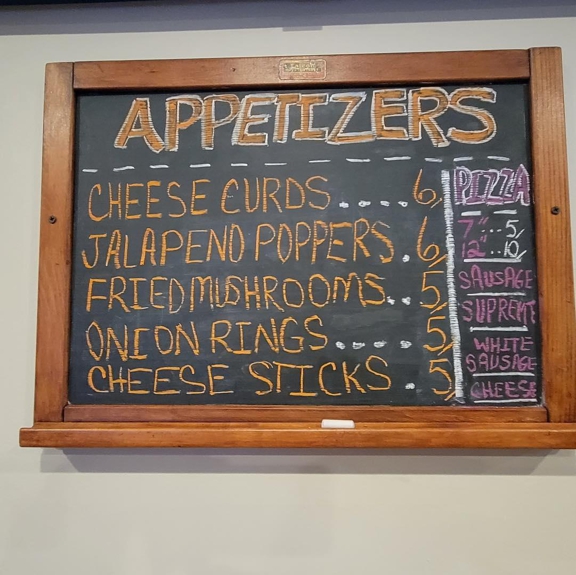 APPETIZERS
CHEESE CURDS .... 6/
JALAPENO POPPERS . 6/
FRIED MUSHROOMS .. 5/
ONION RINGS .... 5/
CHEESE STICKS . 5/
PIZZA
7" ... 5/
12" .. 10/
SAUSAGE
SUPREME
WHITE
SAUSAGE
CHEESE